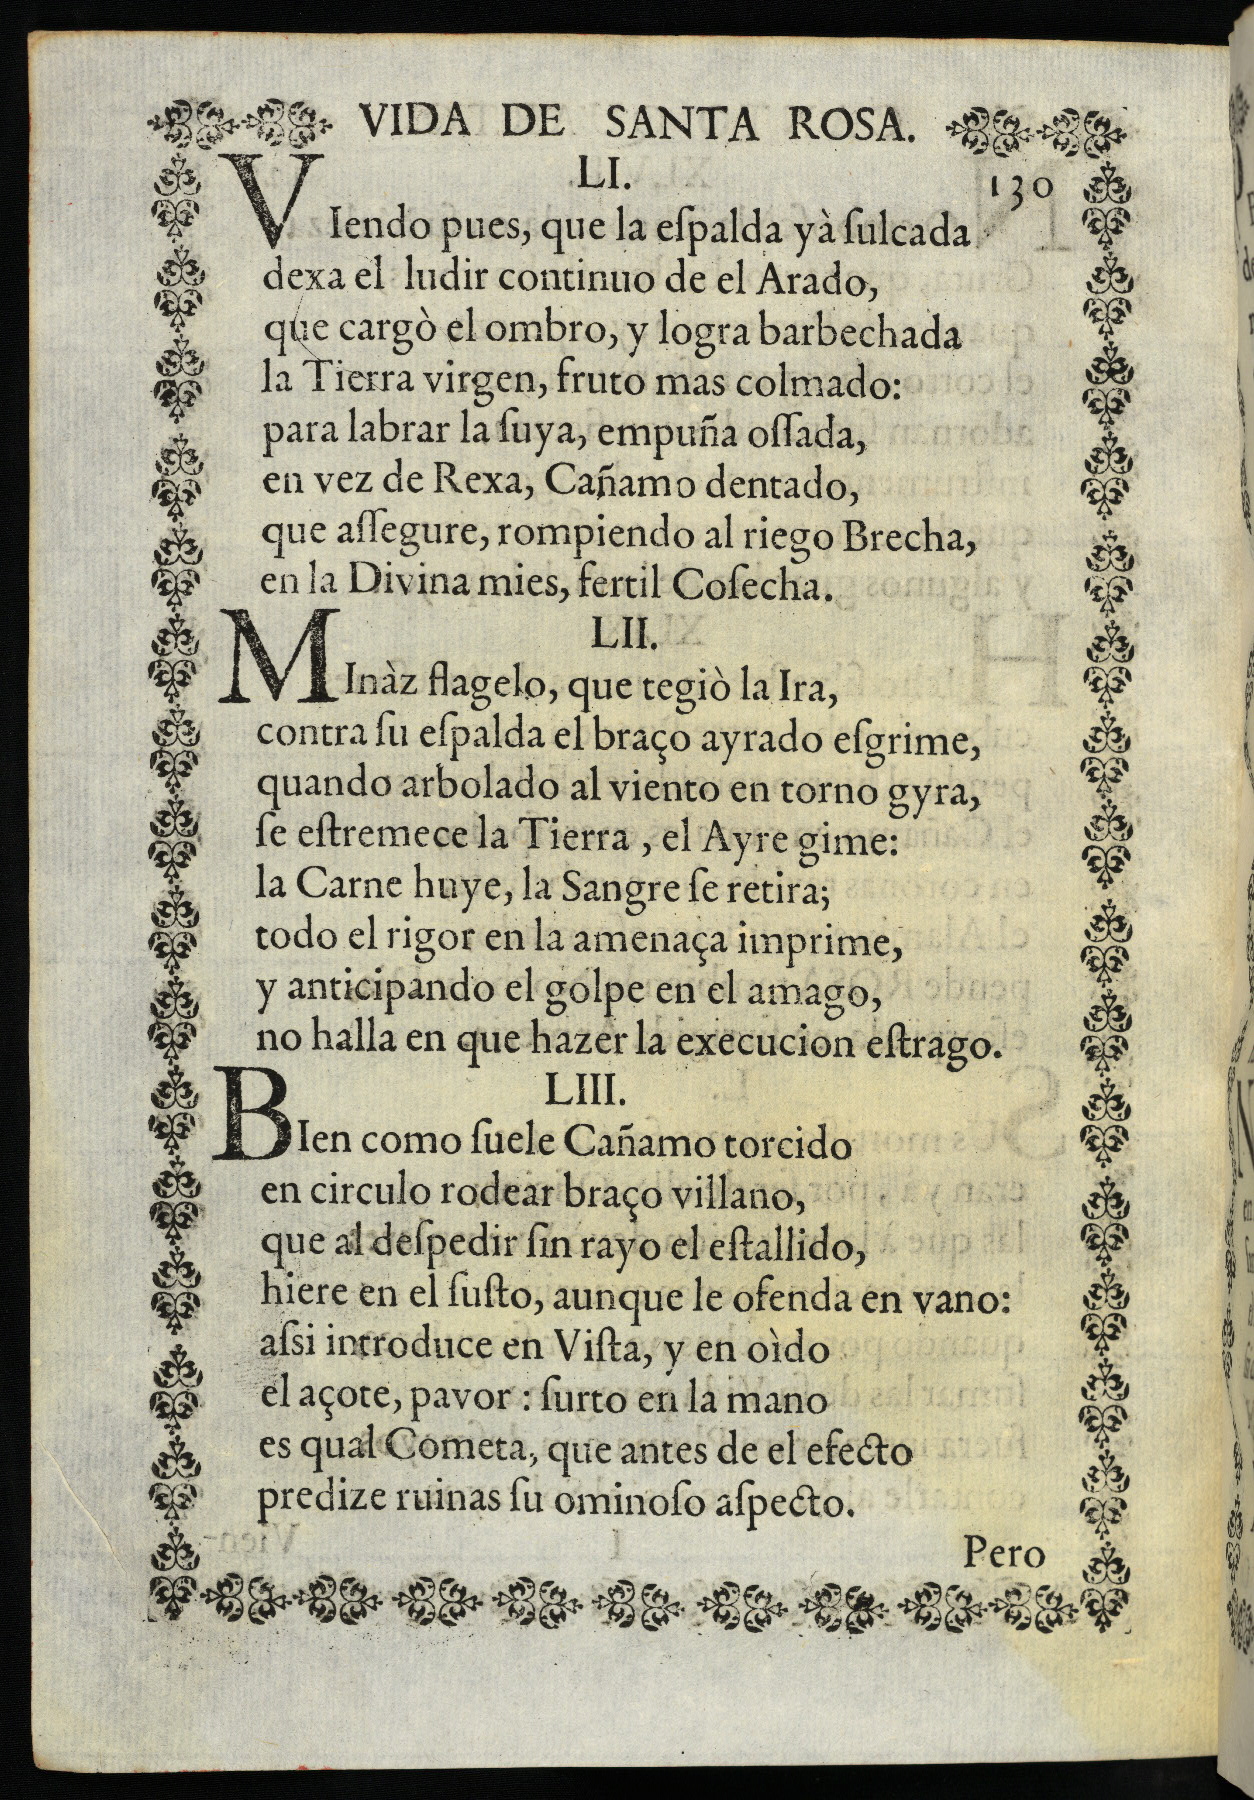 VIDA DE SANTA ROSA.
LI.
130
VIendo pues, que la eſpalda yà ſulcada
dexa el ludir continuo de el Arado,
que cargò el ombro, y logra barbechada
la Tierra virgen, fruto mas colmado:
para labrar la ſuya, empuña oſſada,
en vez de Rexa, Cañamo dentado,
que aſſegure, rompiendo al riego Brecha,
en la Divina mies, fertil Coſecha.
LII.
MInàz flagelo, que tegiò la Ira,
contra ſu eſpalda el braço ayrado eſgrime,
quando arbolado al viento en torno gyra,
ſe eſtremece la Tierra , el Ayre gime:
la Carne huye, la Sangre ſe retira;
todo el rigor en la amenaça imprime,
y anticipando el golpe en el amago,
no halla en que hazer la execucion eſtrago.
LIII.
BIen como ſuele Cañamo torcido
en circulo rodear braço villano,
que al deſpedir ſin rayo el eſtallido,
hiere en el ſuſto, aunque le ofenda en vano:
aſsi introduce en Viſta, y en oìdo
el açote, pavor : ſurto en la mano
es qual Cometa, que antes de el efecto
predize ruinas ſu ominoſo aſpecto.
Pero